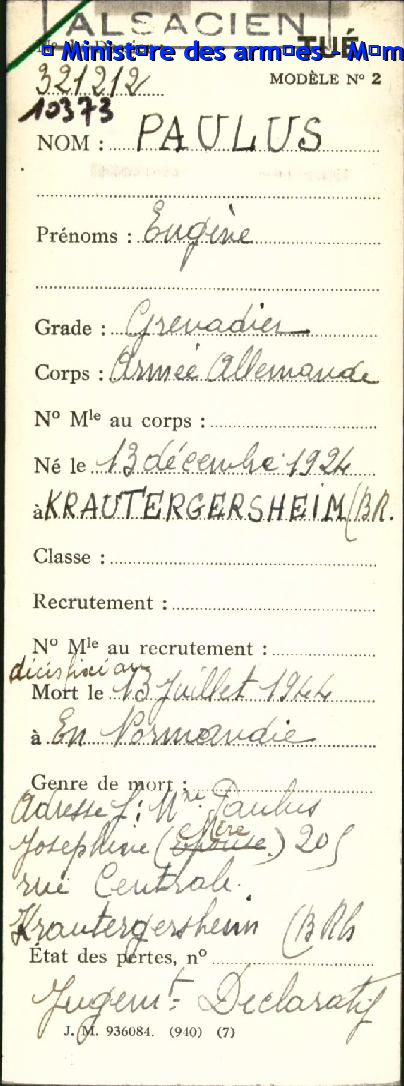 ALSACIEN
TUÉ
Ministre des armes - Mm
321212
MODÈLE Nº 2
10373
NOM : PAULUS
Prénoms : Eugène
Grade : Grenadier
Corps : Armée Allemande
Nº Mle au corps :
Né le 13 décembre 1924
à KRAUTERGERSHEIM (BR.
Classe :
Recrutement :
Nº Mle au recrutement :
Mort le 13 Juillet 1944
à En Normandie
Genre de mort :
Adresse f: Mme Paulus
Mère
Joséphine (Epouse) 205
rue Centrale.
Krautergersheim (B Rh
État des pertes, nº
Jugemt = Declaratif
J. M. 936084. (940) (7)